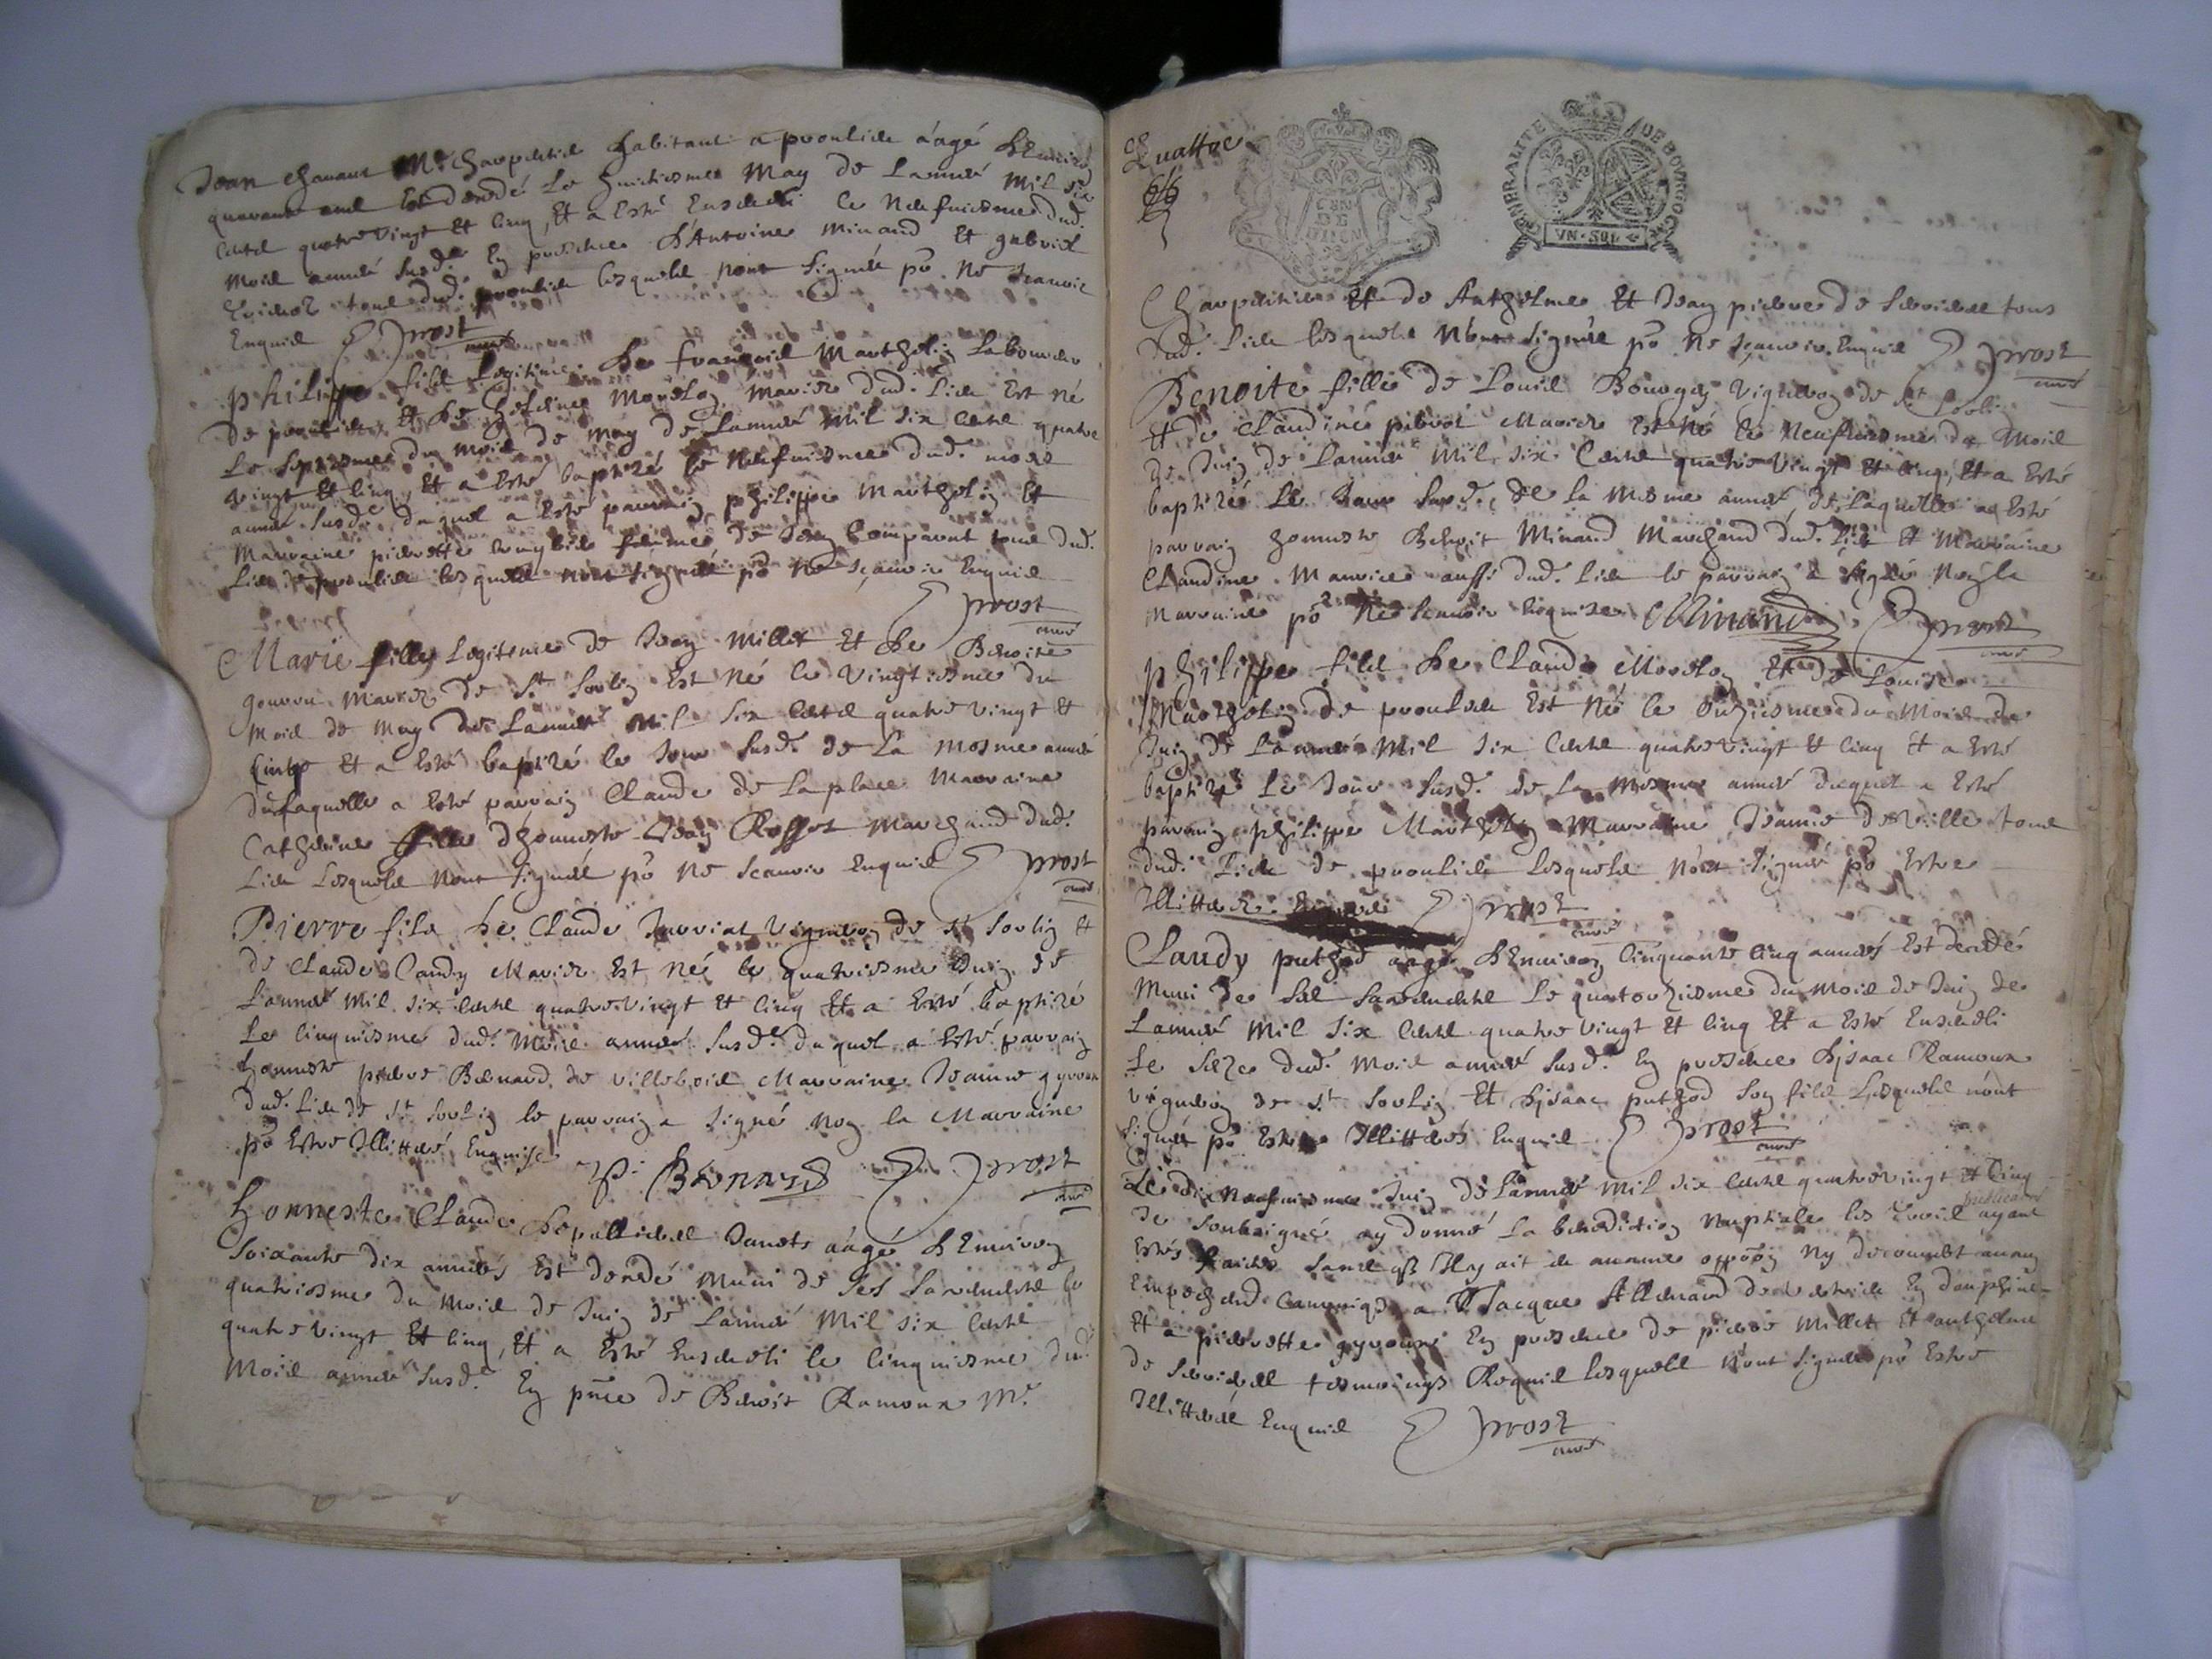 Jean chanant Mre charpentier habitant a proulieu aagé d'Environ
quarante ans Est decedé Le huictiesme May de L'année Mil six
cents quatre vingt Et cinq, Et a Esté Enseveli le Neufuiesme dud.
Mois année susd. En presence d'Antoine Minand Et gabriel
tous dud. proulieu lesquels n'ont Signés po. Ne scauoir
Enquis Prost curé
philippe fils Legitime de françois Marthelin Laboureur
De proulieu Et de Morelon Mariez dud. Lieu Est né
Le septiesme du mois de May de L'année Mil six cents quatre
vingt Et cinq, Et a Esté baptizé le Neufuiesme dud. mois
année susd. duquel a Esté parrain philippe Marthelin Et
Marraine pierrette femme de Jean Comparat tous dud.
Lieu de proulieu lesquels n'ont signés po. Ne sçauoir Enquis
Prost curé
Marie fille Legitime de Jean Millet Et de Benoite
Mariez de St Sorlin Est né le Vingtiesme du
Mois de May de L'année Mil Six cents quatre vingt Et
cinq Et a Esté baptizé le Jour susd. de La mesme année
de laquelle a Esté parrain Claude de La place Marraine
Catherine fille d'honneste Jean Rosset Marchand dud.
Lieu Lesquels n'ont signés po. Ne Scauoir Enquis Prost curé
Pierre fils de Claude Juvriat Vigneron de St Sorlin Et
de Claude Candy Mariez Est né le quatriesme Juin de
L'année Mil six cents quatre vingt Et cinq Et a Esté baptizé
Le cinquiesme dud. Mois année susd. duquel a Esté parrain
honneste pierre Bernard de villebois Marraine Jeanne gyvonn
dud. Lieu de St Sorlin le parrain a signé Non la Marraine
po Estre Illitteré Enquise p. Bernard Prost curé
honneste Claude aagé d'Environ
Soixante dix années Est decedé Muni de ses sacrements le
quatriesme du Mois de Juin de L'année Mil six cents
quatre vingt Et cinq, Et a Esté Enseveli le cinquiesme du
Mois année susd. En pnce de Benoit Ramoux Mre
Quattre
GEN DE DIION
GENERALITE DE BOVRGOG
VN SOL
Charpentier Et de Anthelme Et Jean pierre de Seruieres tous
dud. Lieu lesquels N'ont signés po Ne sçauoir Enquis Prost curé
Benoite fille de Louis Bourgey Vigneron de St Sorlin
Et de Claudine Mariez Est Né le Neufuiesme du Mois
De Juin de L'année Mil six Cents quatre vingt Et cinq, Et a Esté
baptizée Le Jour susd. de la mesme année, de Laquelle a Esté
parrain honneste Benoit Minand Marchand dud. Lieu Et Marraine
Claudine Maurice aussi dud. Lieu le parrain a signé Non la
Marraine po Ne scauoir Enquise Minand Prost curé
philippe fils de Claude Morelon Et de Louise
Marthelin de proulieu Est Né le Onziesme du Mois de
Juin de L'année Mil six cents quatre vingt Et cinq Et a Esté
baptizé Le Jour susd. de La mesme année duquel a Esté
parrain philippe Marthelin Marraine Jeanne Deville tous
dud. Lieu de proulieu Lesquels n'ont signés po Estre
Illitterez Prost curé
Claudy puthod aagé d'Environ cinquante cinq années Est decedé
Muni de ses sacrements Le quatorziesme du Mois de Juin de
L'année Mil six cents quatre vingt Et cinq Et a Esté Enseveli
Le seize dud. Mois année susd. En presence d'jsaac Ramoux
vigneron de St Sorlin Et d'jsaac puthod son fils Lesquels n'ont
Signés po Estre Illitterés Enquis Prost curé
Le dix Neufuiesme Juin de L'année Mil six cents quatre vingt Et cinq
Je Soubsigné ay donné La benediction Nuptiale les trois publicaons ayant
Estés faites sans q'Il y ait eu aucune oppoon Ny decouuert aucun
Empeschemt canoniq, a Jacques Allemand de en dauphiné
Et a pierrette gyvonn En presence de pierre Millet Et anthelme
de Seruieres tesmoings Requis lesquels n'ont signés po Estre
Illitterés Enquis Prost curé